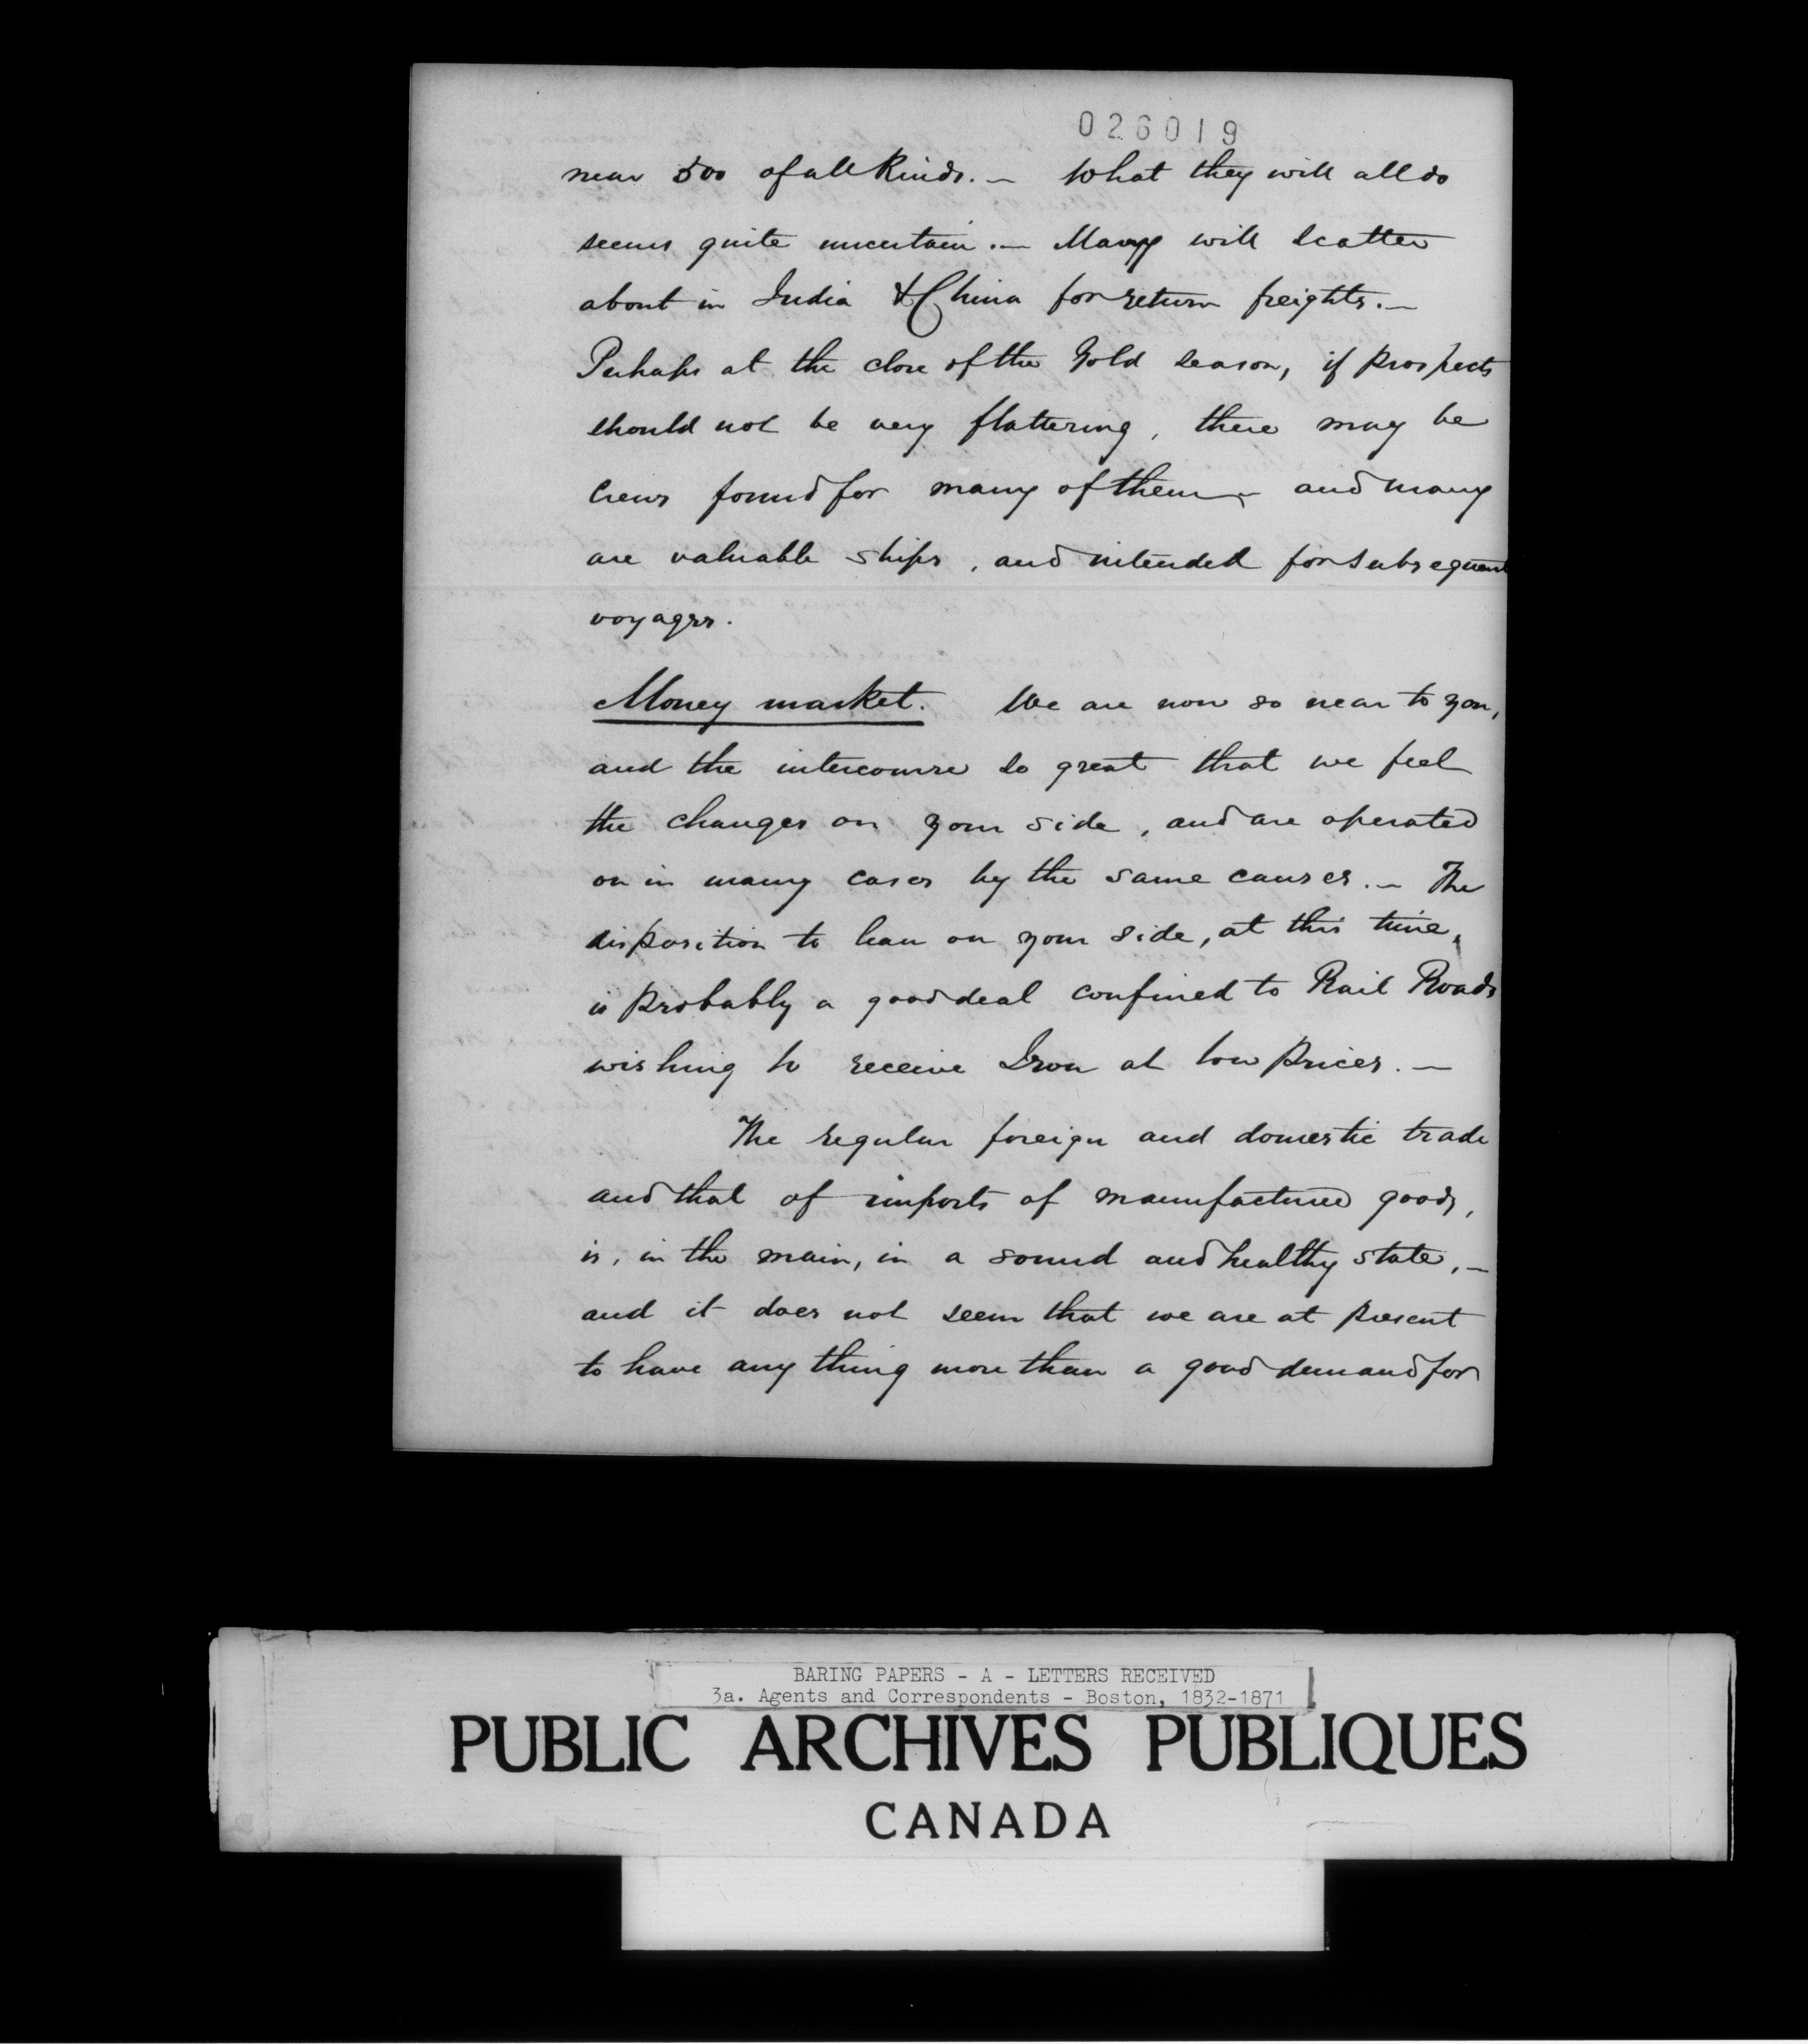 026019
near 500 of all kinds. — What they will all do
seems quite uncertain. — Many will scatter
about in India & China for return freights. —
Perhaps at the close of the Gold season, if prospects
should not be very flattering, there may be
crews found for many of them — and many
are valuable ships, and intended for subsequent
voyages.
Money market. We are now so near to you,
and the intercourse so great that we feel
the changes on your side, and are operated
on in many cases by the same causes. — The
disposition to lean on your side, at this time,
is probably a good deal confined to Rail Roads
wishing to receive Iron at low prices. —
The regular foreign and domestic trade
and that of imports of manufactured goods,
is, in the main, in a sound and healthy state, —
and it does not seem that we are at present
to have any thing more than a good demand for
BARING PAPERS - A - LETTERS RECEIVED
3a. Agents and Correspondents - Boston, 1832-1871
PUBLIC ARCHIVES PUBLIQUES
CANADA